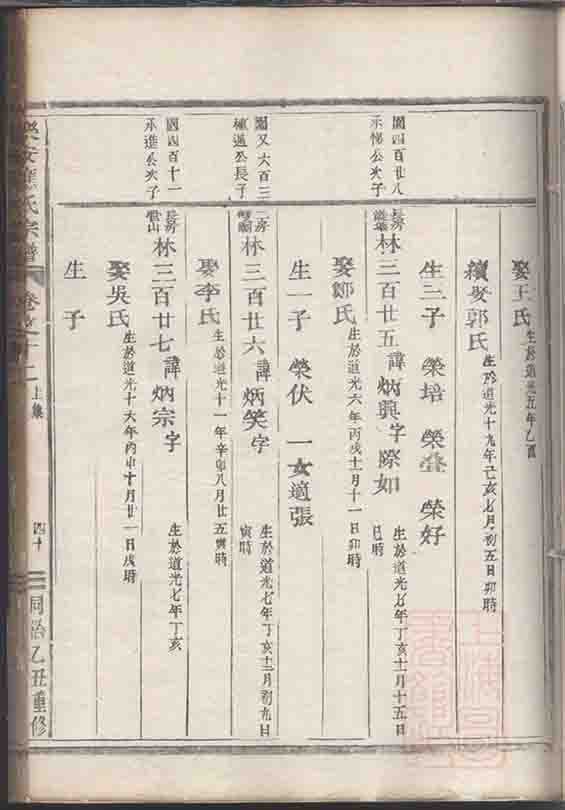 娶王氏 生於道光五年乙酉
續娶郭氏 生於道光十九年己亥七月初五日卯時
生三子 榮培 榮登 榮好
閏四百廿八
承悌公次子
長房 林三百廿五 諱炳興 字際如 生於道光七年丁亥十一月十五日
巳時
娶鄒氏 生於道光六年丙戌十一月十一日卯時
生一子 榮伏 一女適張
閏又六百三
公長子
二房 林三百廿六 諱炳笑 字 生於道光七年丁亥十二月初九日
寅時
娶李氏 生於道光十一年辛卯八月廿五寅時
閏四百十一
承進公次子
長房 林三百廿七 諱炳宗 字 生於道光七年丁亥
娶吳氏 生於道光十六年丙申十月廿一日戌時
生 子
樂安 氏宗譜 卷 十二 上集 四十 同治乙丑重修
上海圖書館藏